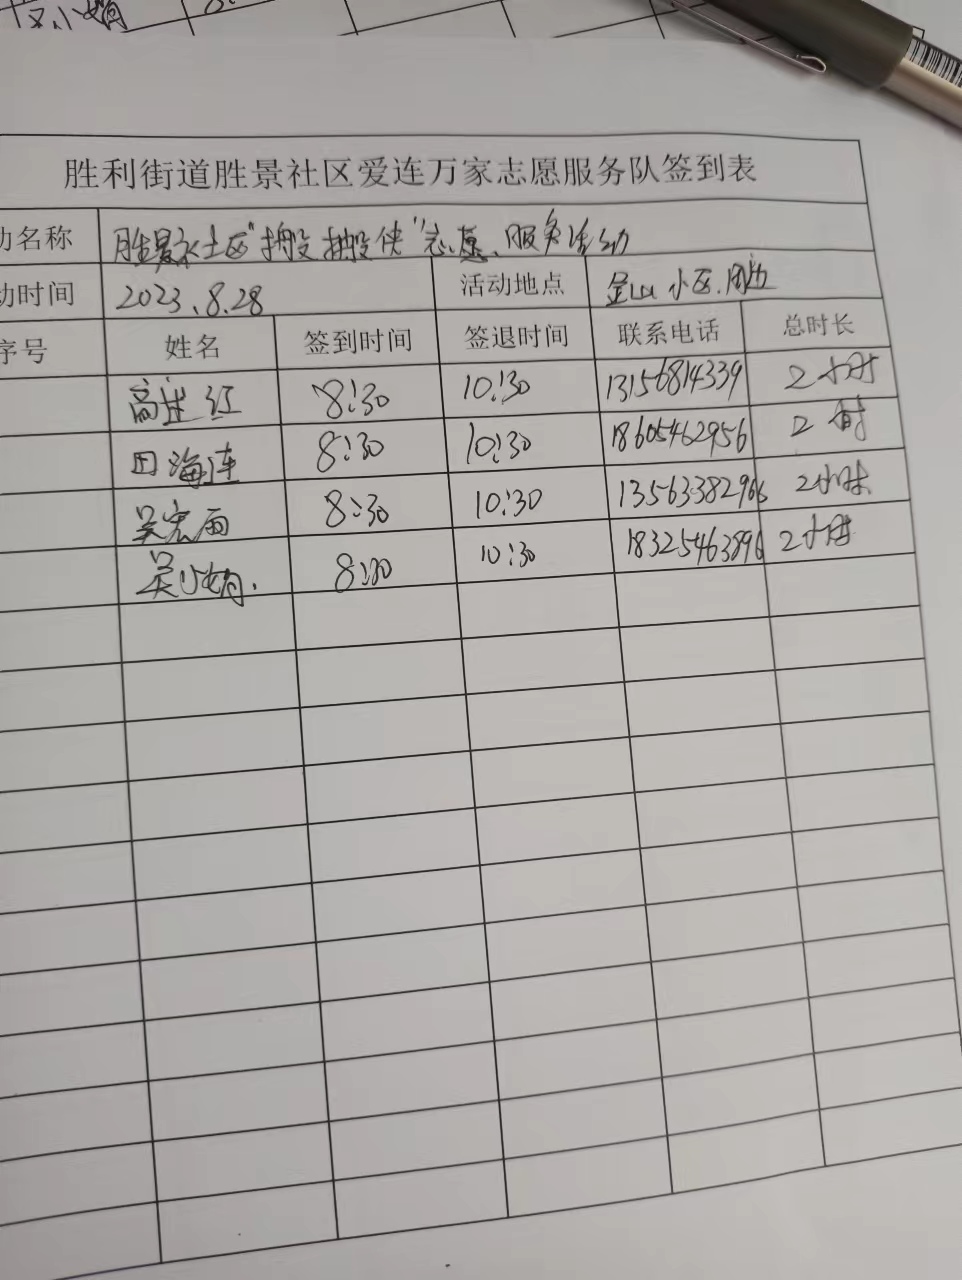 小娟
胜利街道胜景社区爱连万家志愿服务队签到表
动名称 胜景社区"志愿服务活动
动时间 2023.8.28 活动地点 金山小区周边
序号 姓名 签到时间 签退时间 联系电话 总时长
高 红 8:30 10:30 13156814339 2小时
田海连 8:30 10:30 18605462956 2小时
吴宏雨 8:30 10:30 13563382966 2小时
吴小娟. 8:30 10:30 18325463896 2小时